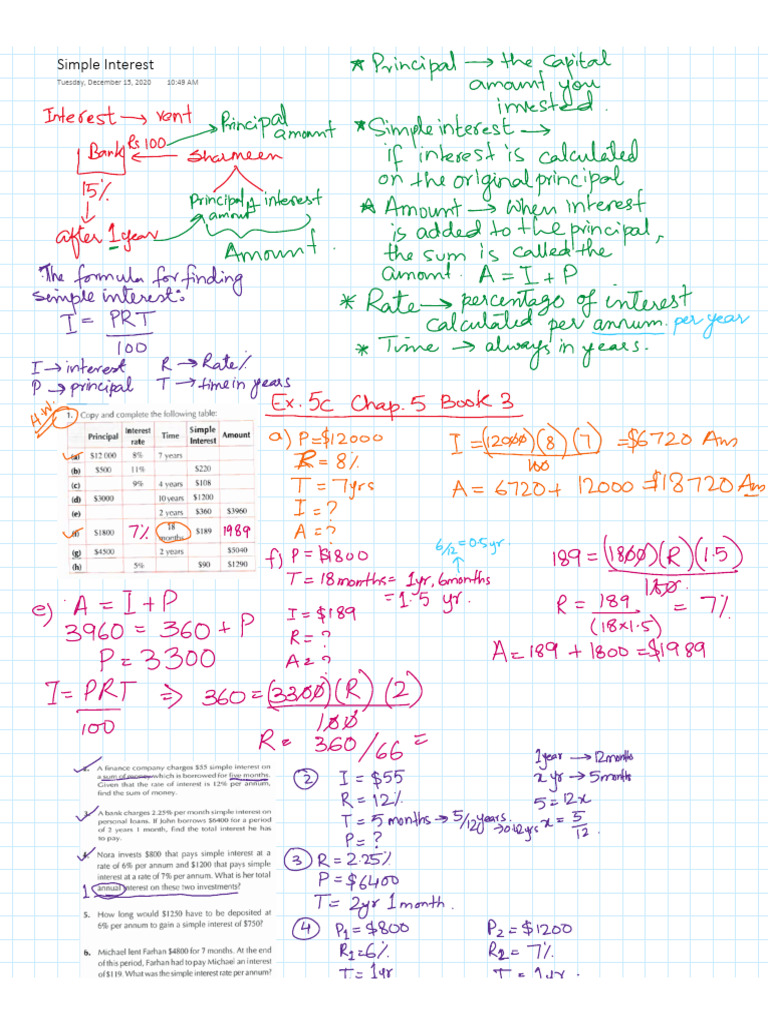 Simple Interest
Tuesday, December 15, 2020 10:49 AM
Interest → rent
Bank Rs 100 ← Shameen → Principal amount
15%
↓
after 1 year
Principal amount + interest
Amount.
The formula for finding
simple interest:
I = PRT
100
I → interest R → Rate%
P → principal T → time in years
* Principal → the capital
amount you
invested.
* Simple interest →
if interest is calculated
on the original principal
* Amount → When interest
is added to the principal,
the sum is called the
amount. A = I + P
* Rate → percentage of interest
calculated per annum. per year
* Time → always in years.
H.W.
1. Copy and complete the following table:
Principal Interest rate Time Simple Interest Amount
(a) $12 000 8% 7 years
(b) $500 11% $220
(c) 9% 4 years $108
(d) $3000 10 years $1200
(e) 2 years $360 $3960
(f) $1800 7% 18 months $189 1989
(g) $4500 2 years $5040
(h) 5% $90 $1290
Ex. 5c Chap. 5 Book 3
a) P = $12000
R = 8%
T = 7yrs
I = ?
A = ?
I = (12000)(8)(7) = $6720 Ans
100
A = 6720 + 12000 = $18720 Ans
f) P = $1800
6/12 = 0.5 yr
T = 18 months = 1yr, 6months
= 1.5 yr.
I = $189
R = ?
A = ?
189 = (1800)(R)(1.5)
100.
R = 189 = 7%
(18 x 1.5)
A = 189 + 1800 = $1989
e) A = I + P
3960 = 360 + P
P = 3300
I = PRT ⇒ 360 = (3300)(R)(2)
100 100
R = 360/66 =
2. A finance company charges $55 simple interest on
a sum of money which is borrowed for five months.
Given that the rate of interest is 12% per annum,
find the sum of money.
3. A bank charges 2.25% per month simple interest on
personal loans. If John borrows $6400 for a period
of 2 years 1 month, find the total interest he has
to pay.
4. Nora invests $800 that pays simple interest at a
rate of 6% per annum and $1200 that pays simple
interest at a rate of 7% per annum. What is her total
1 annual interest on these two investments?
5. How long would $1250 have to be deposited at
6% per annum to gain a simple interest of $750?
6. Michael lent Farhan $4800 for 7 months. At the end
of this period, Farhan had to pay Michael an interest
of $119. What was the simple interest rate per annum?
2 I = $55
R = 12%
T = 5 months → 5/12 years. → 0.42 yrs
P = ?
1 year → 12 months
x yr → 5 months
5 = 12x
x = 5
12.
3 R = 2.25%
P = $6400
T = 2yr 1 month.
4 P1 = $800
R1 = 6%
T = 1yr
P2 = $1200
R2 = 7%
T = 1yr.